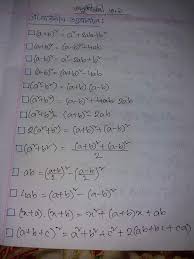 □(a+b)² = a²+2ab+b²
□(a+b)² = (a-b)²+4ab
□(a-b)² = a²-2ab+b²
□(a-b)² = (a+b)²-4ab
□(a²-b²) = (a+b) (a-b)
□(a²+b²) = (a+b)²- 2ab
□(a²+b²) = (a-b)²+ 2ab
□2(a²+b²) = (a+b)²+(a-b)²
□(a²+b²) = (a+b)²+(a-b)²/2
□ab = (a+b/2)² - (a-b/2)²
□4ab = (a+b)² - (a-b)²
□(x+a) (x+b) = x²+(a+b)x+ab
□(a+b+c)² = a²+b²+c²+2(ab+bc+ca)